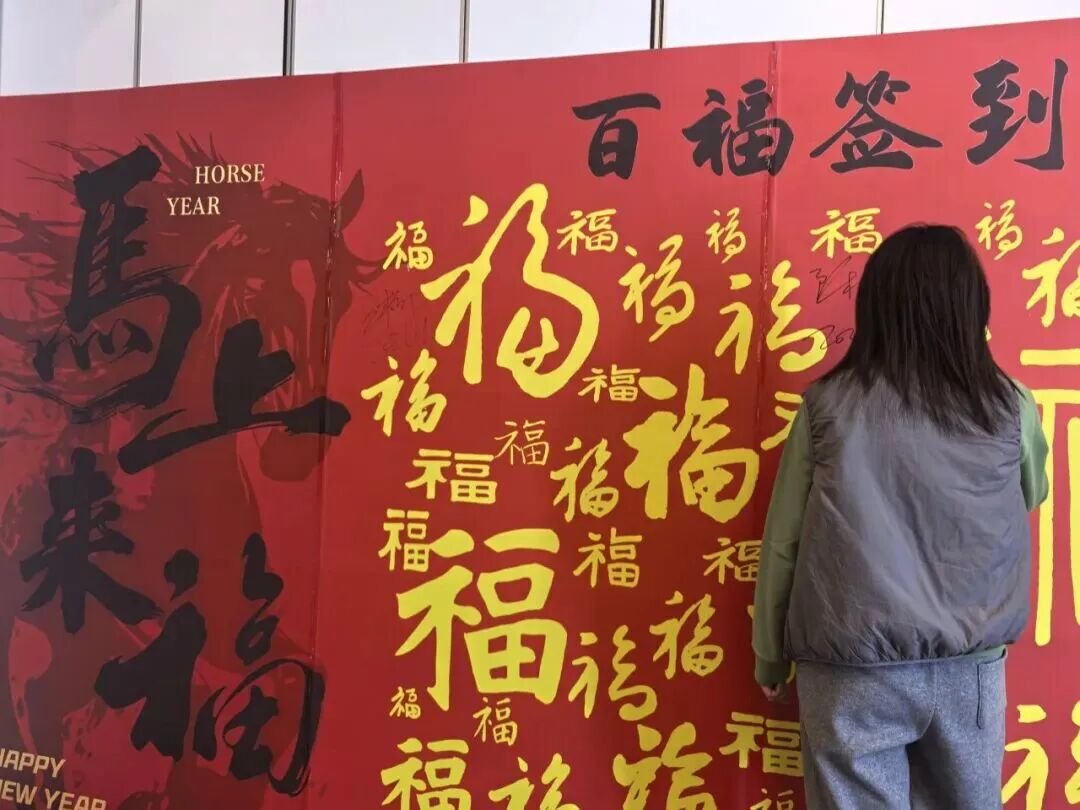 百福签到
HORSE
YEAR
馬上
来福
HAPPY
NEW YEAR
福 福 福 福 福
福 福 福
福 福
福 福
福 福 福
福 福 福
福 福
福 福
福 福
福 福 福 福